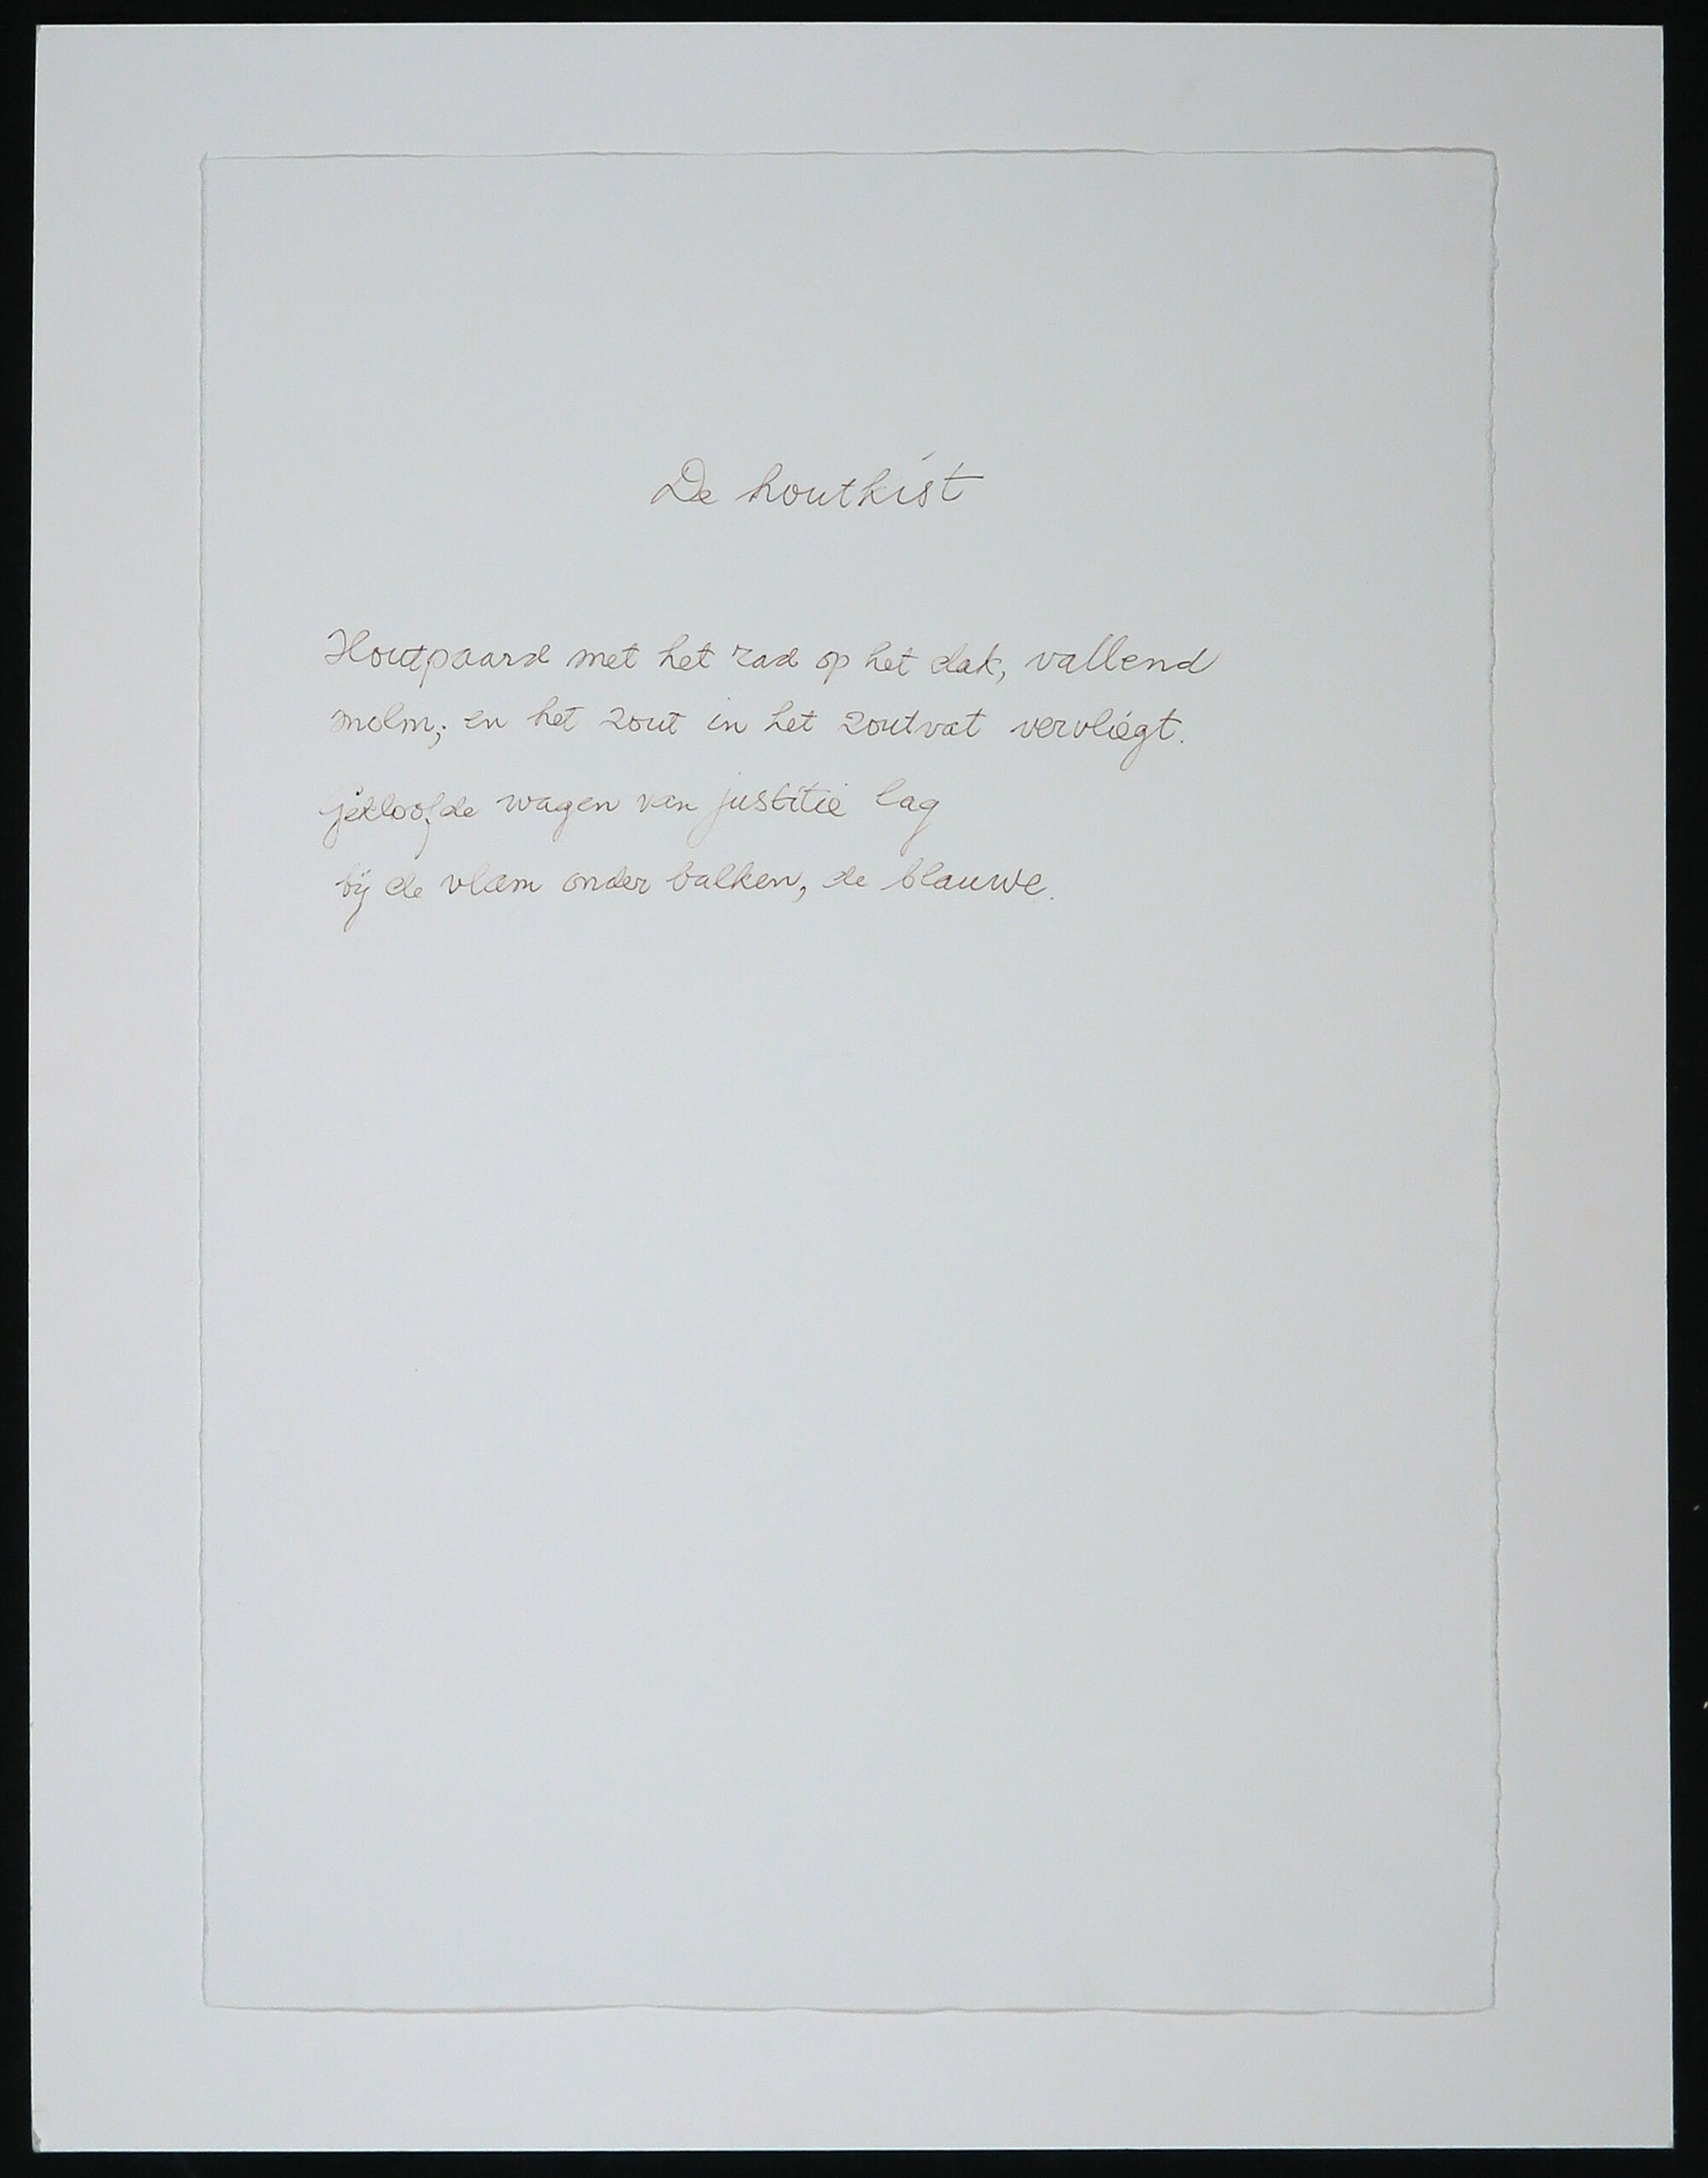 De houtkist
Houtpaard met het rad op het dak, vallend
molm; en het zout in het zoutvat vervliegt.
jekloofde wagen van justitie lag
bij de vlam onder balken, de blauwe.